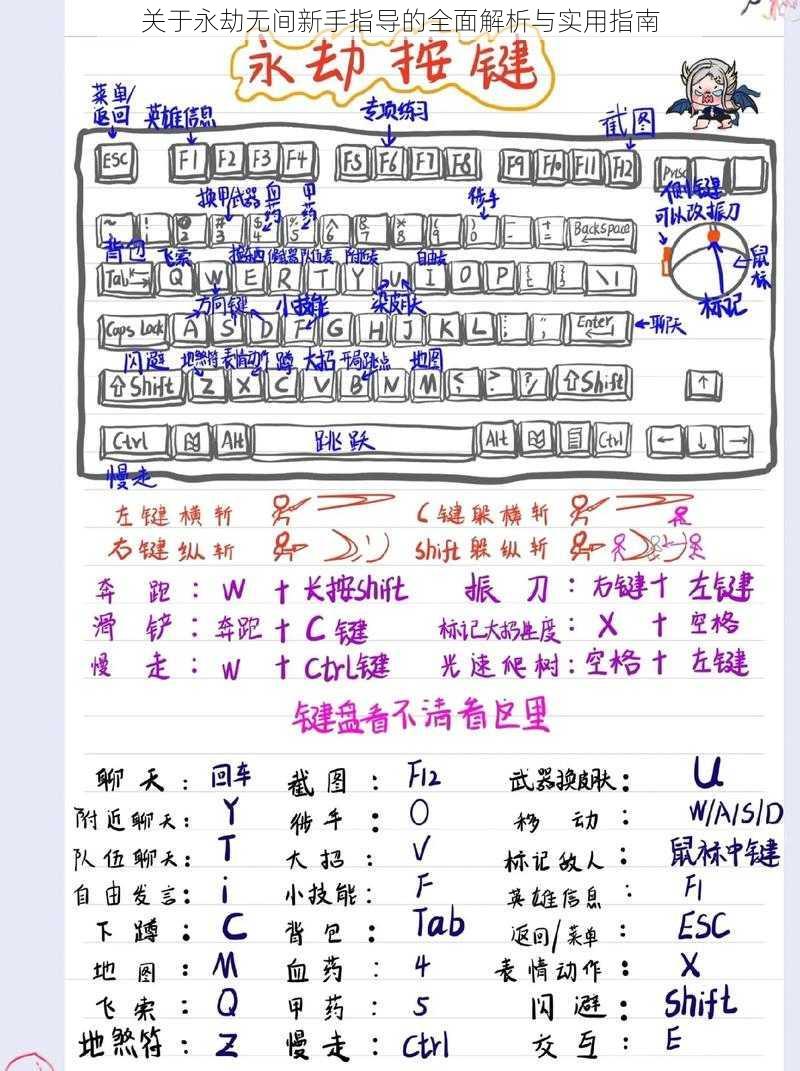 关于永劫无间新手指导的全面解析与实用指南
永劫按键
菜单/返回 英雄信息 专项练习 截图
ESC F1 F2 F3 F4 F5 F6 F7 F8 F9 F10 F11 F12 Prtsc
侧键可以改振刀
换甲 武器 血药 甲药 徒手
~ ! 2 # 3 $ 4 % 5 ^ 6 & 7 * 8 ( 9 ) 0 - - + = Backspace
背包 飞索 队伍 附近 自由
Tab Q W E R T Y U I O P { [ } ] \ |
鼠标
标记
方向键 小技能 换皮肤
Caps Lock A S D F G H J K L : ; Enter 聊天
闪避 地煞符 表情动作 蹲 大招 开局跳点 地图
⇧Shift Z X C V B N M < ? / ⇧Shift ↑
Ctrl Alt 跳跃 Alt Ctrl ← ↓ →
慢走
左键横斩 C键躲横斩
右键纵斩 shift躲纵斩
奔跑：W+长按shift 振刀：右键+左键
滑铲：奔跑+C键 标记大招进度：X+空格
慢走：W+Ctrl键 光速爬树：空格+左键
键盘看不清看这里
聊天：回车 截图：F12 武器换皮肤：U
附近聊天：Y 徒手：0 移动：W/A/S/D
队伍聊天：T 大招：V 标记敌人：鼠标中键
自由发言：i 小技能：F 英雄信息：F1
下蹲：C 背包：Tab 返回/菜单：ESC
地图：M 血药：4 表情动作：X
飞索：Q 甲药：5 闪避：Shift
地煞符：Z 慢走：Ctrl 交互：E